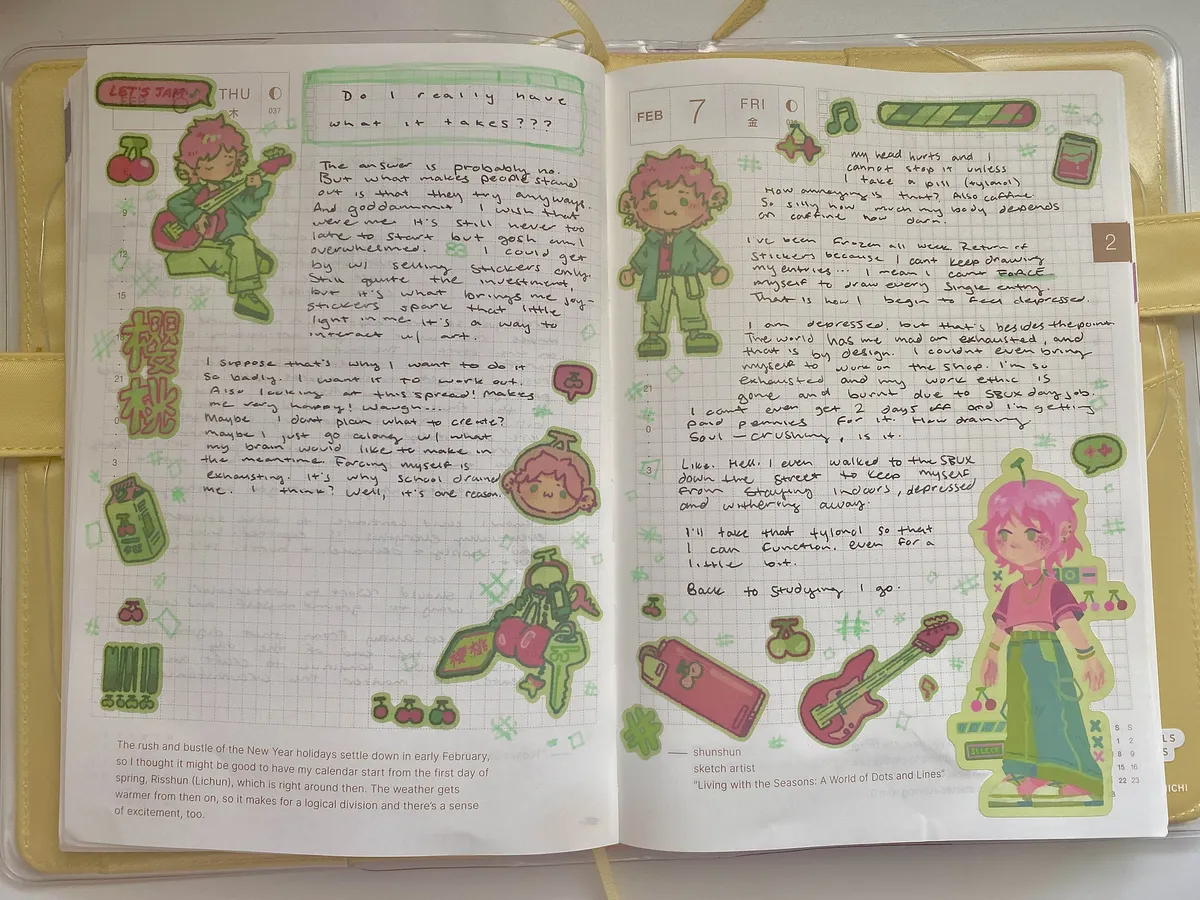 LET'S JAM♪
FEB
THU
木
037
Do I really have
what it takes???
The answer is probably no.
But what makes people stand
out is that they try anyways.
And goddammit I wish that
were me. It's still never too
late to start but gosh am I
overwhelmed. I could get
by w/ selling stickers only.
Still quite the investment,
but it's what brings me joy-
stickers spark that little
light in me. It's a way to
interact w/ art.
9
12
15
18
21
0
3
櫻
桃
I suppose that's why I want to do it
so badly. I want it TO work out.
Also looking at this spread! Makes
me very happy! Waugh...
Maybe I dont plan what to create?
maybe I just go along w/ what
my brain would like to make in
the meantime. Forcing myself is
exhausting. It's why school drained
me. I think? Well, it's one reason.
櫻桃
The rush and bustle of the New Year holidays settle down in early February,
so I thought it might be good to have my calendar start from the first day of
spring, Risshun (Lichun), which is right around then. The weather gets
warmer from then on, so it makes for a logical division and there's a sense
of excitement, too.
FEB
7
FRI
金
my head hurts and I
cannot stop it unless
I take a pill (tylonol)
How annoying is that? Also caffine
So silly how much my body depends
on caffine now darn.
I've been frozen all week. Return of
stickers because I cant keep drawing
my entries... I mean I cant FORCE
myself to draw every single entry.
That is how I begin to feel depressed.
I am depressed. but that's besides the point.
The world has me mad an exhausted, and
that is by design. I couldnt even bring
myself to work on the shop. I'm so
exhausted and my work ethic is
gone and burnt due to SBUX day job.
I cant even get 2 days off and I'm getting
paid pennies for it. How draining
Soul-crushing, is it.
Like. Hell. I even walked to the SBUX
down the street to keep myself
from staying indoors, depressed
and withering away.
I'll take that tylonol so that
I can function. even for a
little bit.
Back to studying I go.
2
21
0
3
SELECT
— shunshun
sketch artist
"Living with the Seasons: A World of Dots and Lines"
S S
1 2
8 9
15 16
22 23